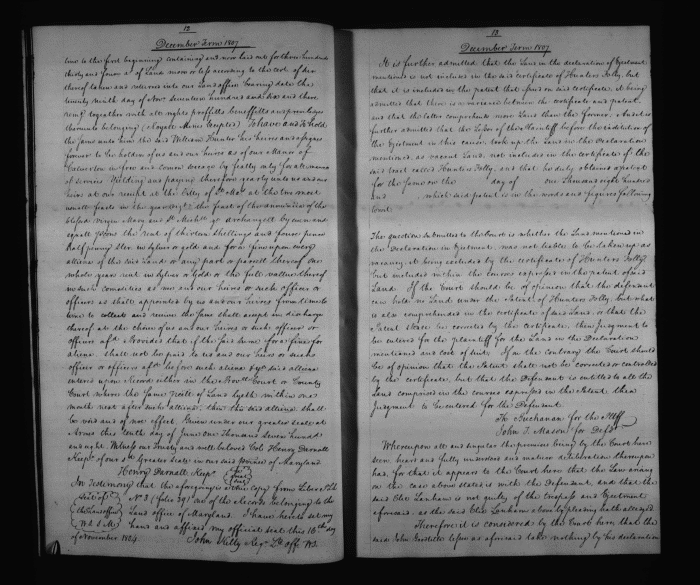 12
December Term 1807
line to the first beginning containing and now laid out for three hundred
thirty and four a^s of Land more or less according to the cert. of sur
thereof taken and returned into our Land office bearing date the
twenty ninth day of Nov^r seventeen hundred and six and there
remaining together with all rights proffitts benefitts and priviledges
thereunto belonging (Royall Mines Excepted) To have and To hold
the same unto him the said William Hunter his heirs and assigns
forever to be holden of us and our heirs as of our Manor of
in free and common soccage by fealty only for all manner
of services Yielding and paying therefore yearly unto us and our
heirs at our receipt at the City of St Marys at the two most
usuall feasts in the year (viz^t) the feast of the annunciation of the
blessed virgin Mary and S^t Michll y^e archangell by even and
equall portions the rent of thirteen shillings and four pence
half penny ster in sylver or gold and for a fine upon every
aliena of the said Land or any part or parcell thereof one
whole years rent in sylver or Gold or the full value thereof
in such comodities as we and our heirs or such officer or
officers as shall appointed by us and our heires from time to
time to collect and receive the same shall accept in discharge
thereof at the choice of us and our heires or such officer or
officers af^d Provided that if the said sume for a fine for
aliena shall not be paid to us and our heirs or such
officer or officers af^d before such aliena & y^e said aliena
entered upon Record either in the Prov^ll Court or County
Court where the same parcell of Land lyeth within one
month next after such aliena, then the said aliena shall
be void and of no effect. Given under our greater seale at
Armes this tenth day of June one thousand seven hundred
and eight. Witness our trusty and well beloved Col^o Henry Darnall
Keep^r of our s^d Greater Seale in our said Province of Maryland
Henry Darnall Keep^r
In Testimony that the aforegoing is a true copy from Liber
N^o 3 (folio 39) one of the Records belonging to the
Land office of Maryland. I have hereto set my
hand and affixed my official seal this 16^th day
of November 1804.
John Kilty Reg^r Ld off. W S
Seal of
the Land office
W S & M
13
December Term 1807
It is further admitted that the Land in the declaration of Ejectment
mentioned is not included in the said certificate of Hunters Folly, but
that it is included in the patent that issued on said certificate, it being
admitted that there is a variance between the certificate and patent,
and that the latter comprehends more Land than the former. And it is
further admitted that the Lessor of the Plaintiff before the institution of
the Ejectment in this cause, took up the Land in the Declaration
mentioned, as vacant Land, not included in the certificate of the
said tract called Hunters Folly, and that he duly obtained a patent
for the same on the day of one thousand eight hundred
and , which said patent is in the words and figures following
to wit.
The question submitted to the Court is whether the Land mentioned in
the Declaration in Ejectment, was not liable to be taken up as
vacancy, it being excluded by the certificate of Hunters Folly,
but included within the courses expressed in the patent of said
Land. If the Court should be of opinion that the defendant
can hold no Land under the Patent of Hunters Folly, but what
is also comprehended in the certificate of said Land, or that the
Patent shall be corrected by the certificate, then Judgment to
be entered for the plaintiff for the Land in the Declaration
mentioned and cost of suit. If on the contrary the Court should
be of opinion that the Patent shall not be corrected or controlled
by the certificate, but that the Defendant is entitled to all the
Land comprised in the courses expressed in the Patent, then
Judgment to be entered for the Defendant.
Th^s Buchanan for the Plff
John T. Mason for Def^t
Whereupon all and singular the premises being by the Court here
seen, heard and fully understood and mature deliberation thereupon
had, for that it appears to the Court here that the Law arising
on the case above stated is with the Defendant, and that the
said Elie Lanham is not guilty of the trespass and Ejectment
aforesaid, as the said Elie Lanham above by pleading hath alledged
Therefore it is considered by the Court here that the
said John Goodtitle lessee as aforesaid take nothing by his declaration